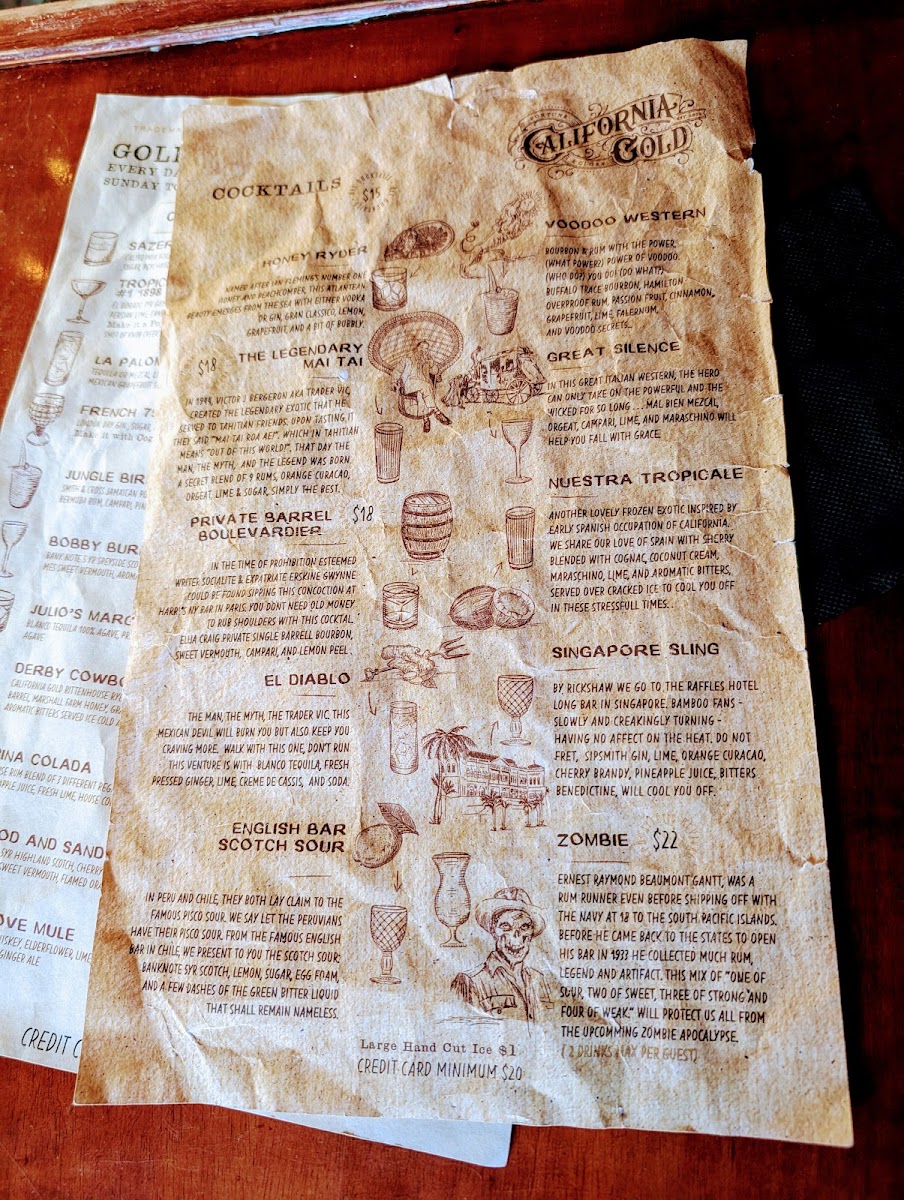 CALIFORNIA
GOLD
COCKTAILS
$15
HONEY RYDER
NAMED AFTER IAN FLEMING'S NUMBER ONE
HONEY AND BEACHCOMBER, THIS ATLANTEAN
BEAUTY EMERGES FROM THE SEA WITH EITHER VODKA
OR GIN, GRAN CLASSICO, LEMON,
GRAPEFRUIT, AND A BIT OF BUBBLY.
$18
THE LEGENDARY
MAI TAI
IN 1944, VICTOR J BERGERON AKA TRADER VIC,
CREATED THE LEGENDARY EXOTIC THAT HE
SERVED TO TAHITIAN FRIENDS. UPON TASTING IT
THEY SAID "MAI TAI ROA AE!". WHICH IN TAHITIAN
MEANS "OUT OF THIS WORLD!". THAT DAY THE
MAN, THE MYTH, AND THE LEGEND WAS BORN.
A SECRET BLEND OF 9 RUMS, ORANGE CURACAO,
ORGEAT, LIME & SUGAR, SIMPLY THE BEST.
PRIVATE BARREL
BOULEVARDIER
$18
IN THE TIME OF PROHIBITION ESTEEMED
WRITER SOCIALITE & EXPATRIATE ERSKINE GWYNNE
COULD BE FOUND SIPPING THIS CONCOCTION AT
HARRI'S NY BAR IN PARIS. YOU DONT NEED OLD MONEY
TO RUB SHOULDERS WITH THIS COCKTAL.
ELIJA CRAIG PRIVATE SINGLE BARRELL BOURBON,
SWEET VERMOUTH, CAMPARI, AND LEMON PEEL.
EL DIABLO
THE MAN, THE MYTH, THE TRADER VIC. THIS
MEXICAN DEVIL WILL BURN YOU BUT ALSO KEEP YOU
CRAVING MORE. WALK WITH THIS ONE, DON'T RUN
THIS VENTURE IS WITH BLANCO TEQUILA, FRESH
PRESSED GINGER, LIME, CREME DE CASSIS, AND SODA.
ENGLISH BAR
SCOTCH SOUR
IN PERU AND CHILE, THEY BOTH LAY CLAIM TO THE
FAMOUS PISCO SOUR. WE SAY LET THE PERUVIANS
HAVE THEIR PISCO SOUR. FROM THE FAMOUS ENGLISH
BAR IN CHILE, WE PRESENT TO YOU THE SCOTCH SOUR;
BANKNOTE 5YR SCOTCH, LEMON, SUGAR, EGG FOAM,
AND A FEW DASHES OF THE GREEN BITTER LIQUID
THAT SHALL REMAIN NAMELESS.
VOODOO WESTERN
BOURBON & RUM WITH THE POWER.
(WHAT POWER?) POWER OF VOODOO.
(WHO DO?) YOU DO! (DO WHAT?)
BUFFALO TRACE BOURBON, HAMILTON
OVERPROOF RUM, PASSION FRUIT, CINNAMON,
GRAPEFRUIT, LIME, FALERNUM,
AND VOODOO SECRETS...
GREAT SILENCE
IN THIS GREAT ITALIAN WESTERN, THE HERO
CAN ONLY TAKE ON THE POWERFUL AND THE
WICKED FOR SO LONG . . . MAL BIEN MEZCAL,
ORGEAT, CAMPARI, LIME, AND MARASCHINO WILL
HELP YOU FALL WITH GRACE.
NUESTRA TROPICALE
ANOTHER LOVELY FROZEN EXOTIC INSPIRED BY
EARLY SPANISH OCCUPATION OF CALIFORNIA.
WE SHARE OUR LOVE OF SPAIN WITH SHERRY
BLENDED WITH COGNAC, COCONUT CREAM,
MARASCHINO, LIME, AND AROMATIC BITTERS,
SERVED OVER CRACKED ICE TO COOL YOU OFF
IN THESE STRESSFULL TIMES. .
SINGAPORE SLING
BY RICKSHAW WE GO TO THE RAFFLES HOTEL
LONG BAR IN SINGAPORE. BAMBOO FANS -
SLOWLY AND CREAKINGLY TURNING -
HAVING NO AFFECT ON THE HEAT. DO NOT
FRET, SIPSMITH GIN, LIME, ORANGE CURACAO,
CHERRY BRANDY, PINEAPPLE JUICE, BITTERS
BENEDICTINE, WILL COOL YOU OFF.
ZOMBIE $22
ERNEST RAYMOND BEAUMONT GANTT, WAS A
RUM RUNNER EVEN BEFORE SHIPPING OFF WITH
THE NAVY AT 18 TO THE SOUTH PACIFIC ISLANDS.
BEFORE HE CAME BACK TO THE STATES TO OPEN
HIS BAR IN 1933 HE COLLECTED MUCH RUM,
LEGEND AND ARTIFACT. THIS MIX OF "ONE OF
SOUR, TWO OF SWEET, THREE OF STRONG AND
FOUR OF WEAK." WILL PROTECT US ALL FROM
THE UPCOMMING ZOMBIE APOCALYPSE.
( 2 DRINKS MAX PER GUEST)
Large Hand Cut Ice $1
CREDIT CARD MINIMUM $20
GOL
EVERY DA
SUNDAY TO
SAZER
TROPIC
#1 1898
LA PALOM
FRENCH 75
LONDON DRY GIN, SUGAR,
Make it with Cog
JUNGLE BIR
SMITH & CROSS JAMAICAN
BERMUDA RUM, CAMPARI, PIN
BOBBY BUR
BANK NOTE 5 YR SPEYSIDE SCO
SWEET VERMOUTH, AROMA
JULIO'S MARG
BLANCO TEQUILA 100% AGAVE,
AGAVE
DERBY COWBO
CALIFORNIA GOLD RITTENHOUSE RYE
BARREL, MARSHALL FARM HONEY, GR
AROMATIC BITTERS SERVED ICE COLD
INA COLADA
SE RUM BLEND OF 7 DIFFERENT REG
APPLE JUICE, FRESH LIME, HOUSE CO
OD AND SAND
5YR HIGHLAND SCOTCH, CHERRY
SWEET VERMOUTH, FLAMED ORA
OVE MULE
ISKEY, ELDERFLOWER, LIME
GINGER ALE
CREDIT C